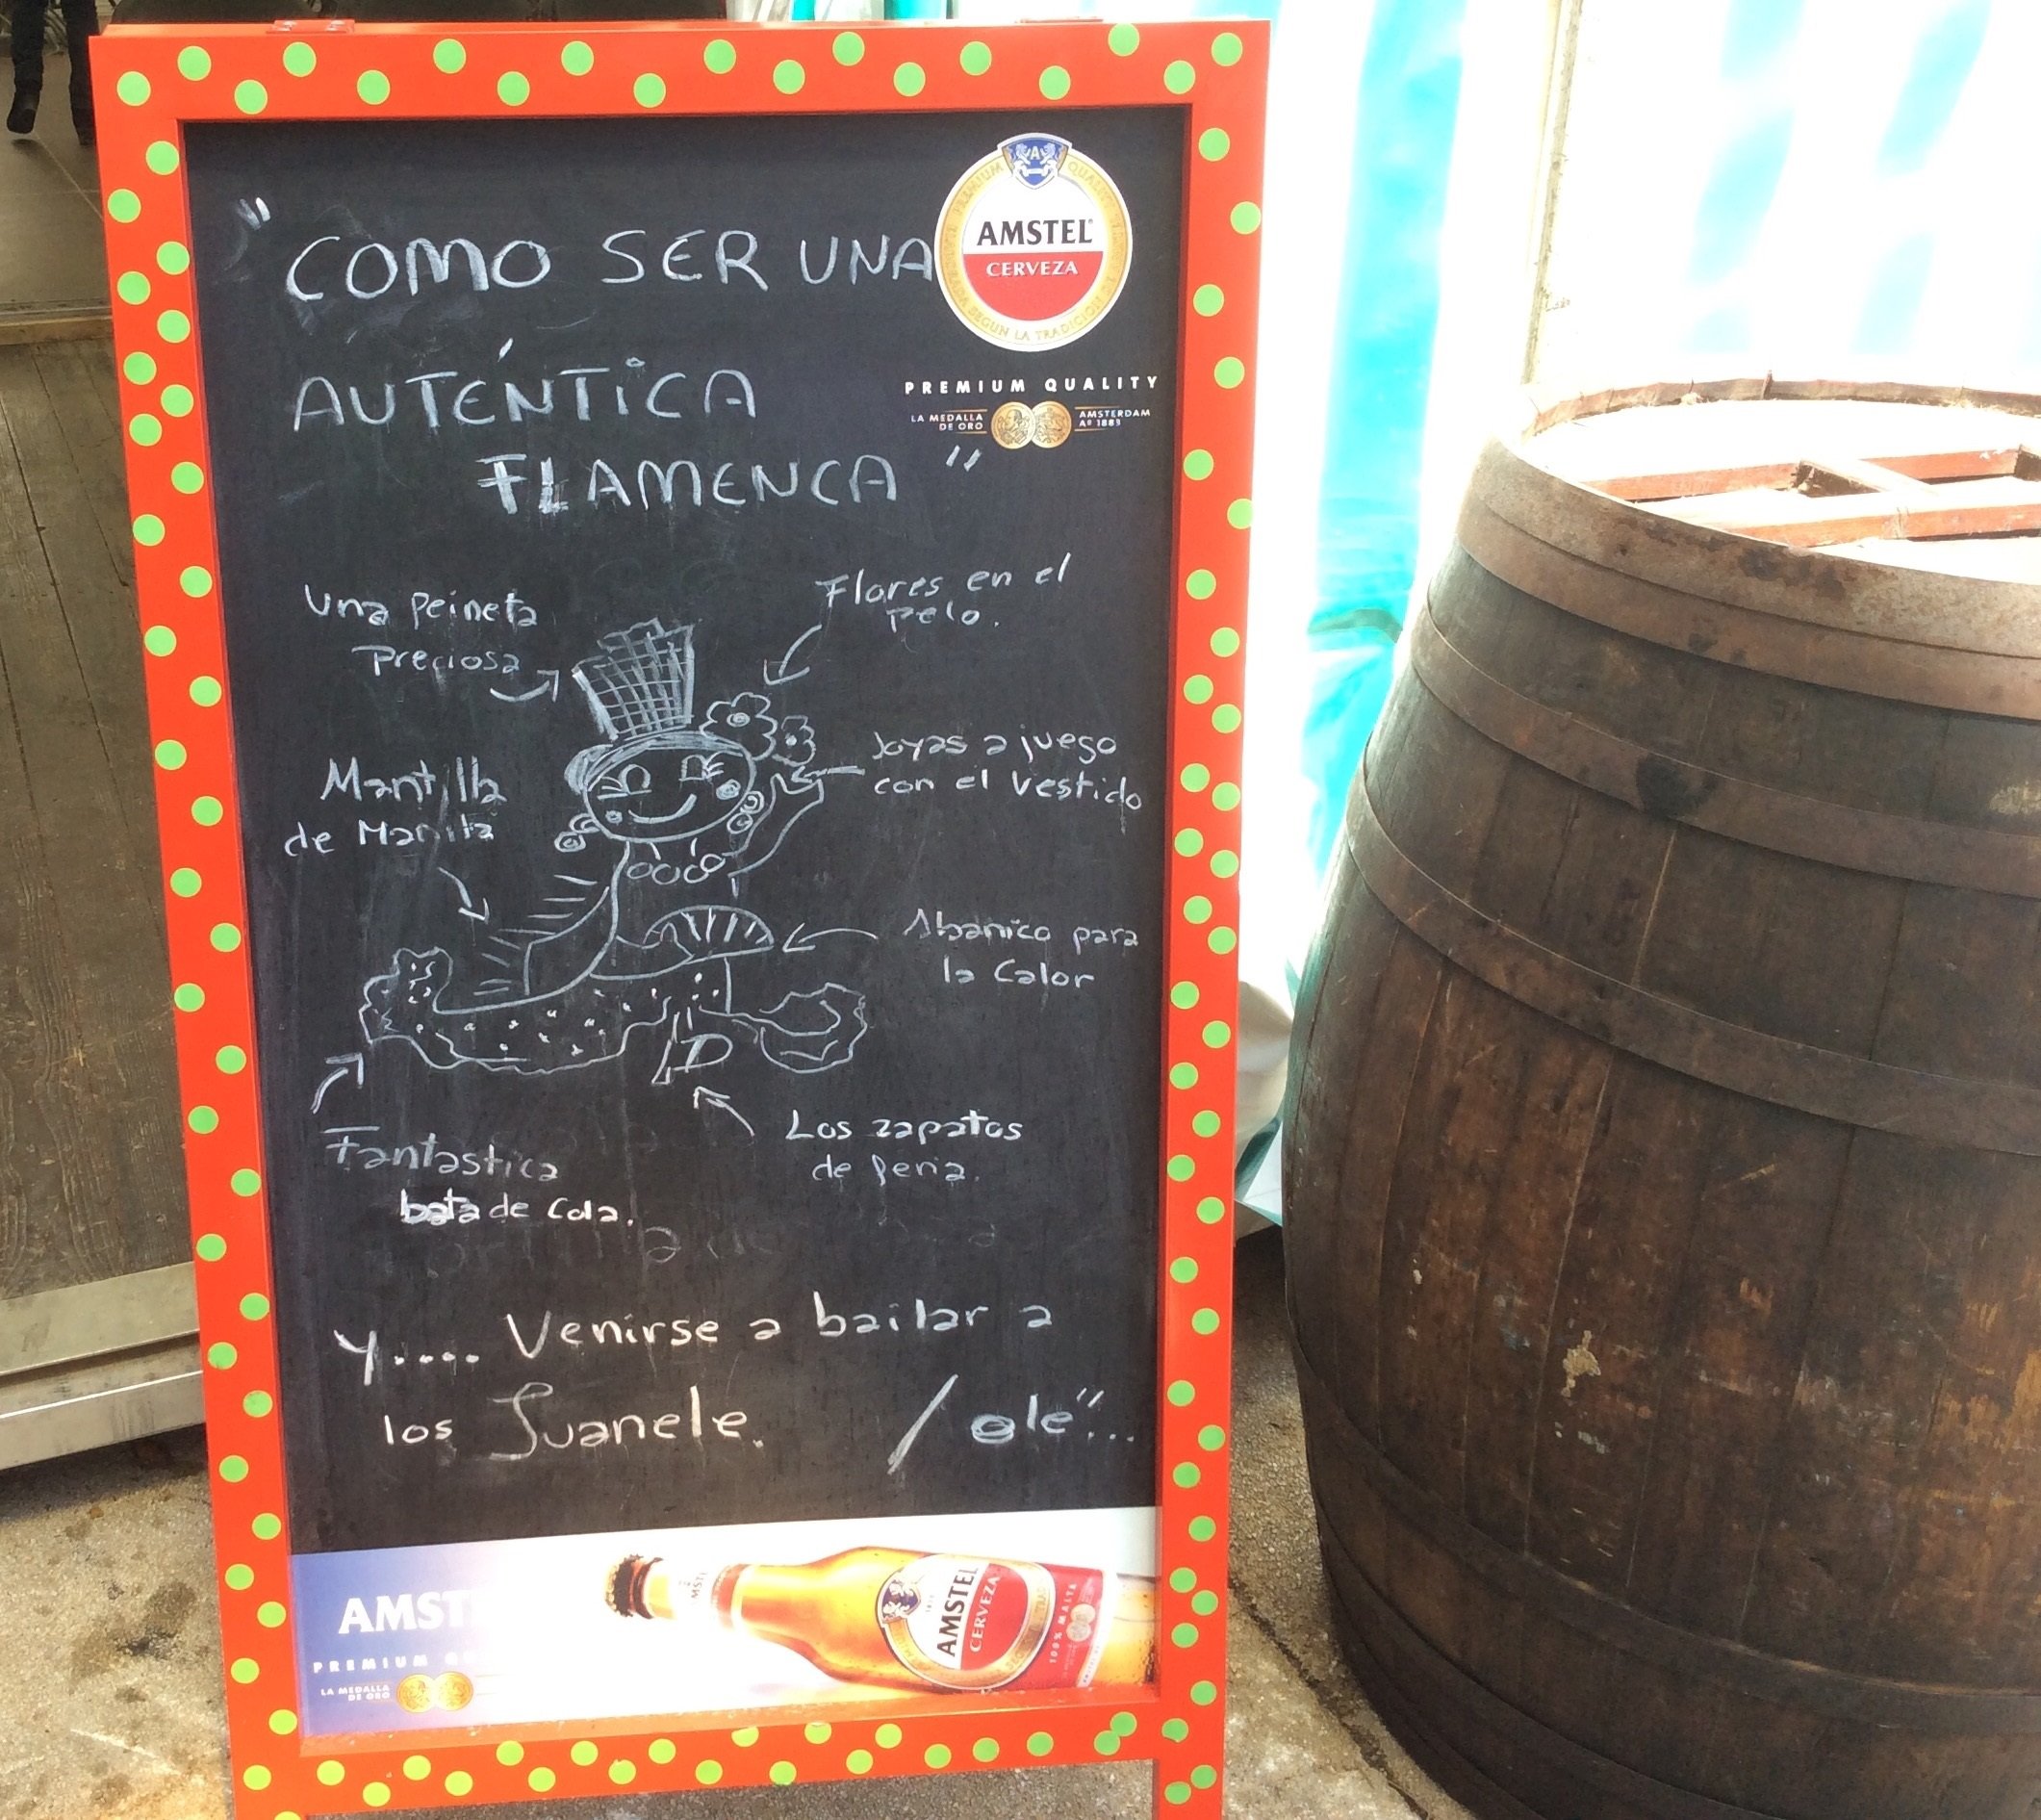 "COMO SER UNA
AUTÉNTICA
FLAMENCA"
AMSTEL
CERVEZA
PREMIUM QUALITY
LA MEDALLA
DE ORO
AMSTERDAM
Aº 1883
Una Peineta
Preciosa
Flores en el
pelo.
Joyas a juego
con el vestido
Mantilla
de Manila
Abanico para
la Calor
Fantastica
bata de Cola.
Los zapatos
de feria.
Y.... Venirse a bailar a
los Juanele. / ole"...
AMST
PREMIUM
LA MEDALLA
DE ORO
AMSTEL
CERVEZA
100% MALTA